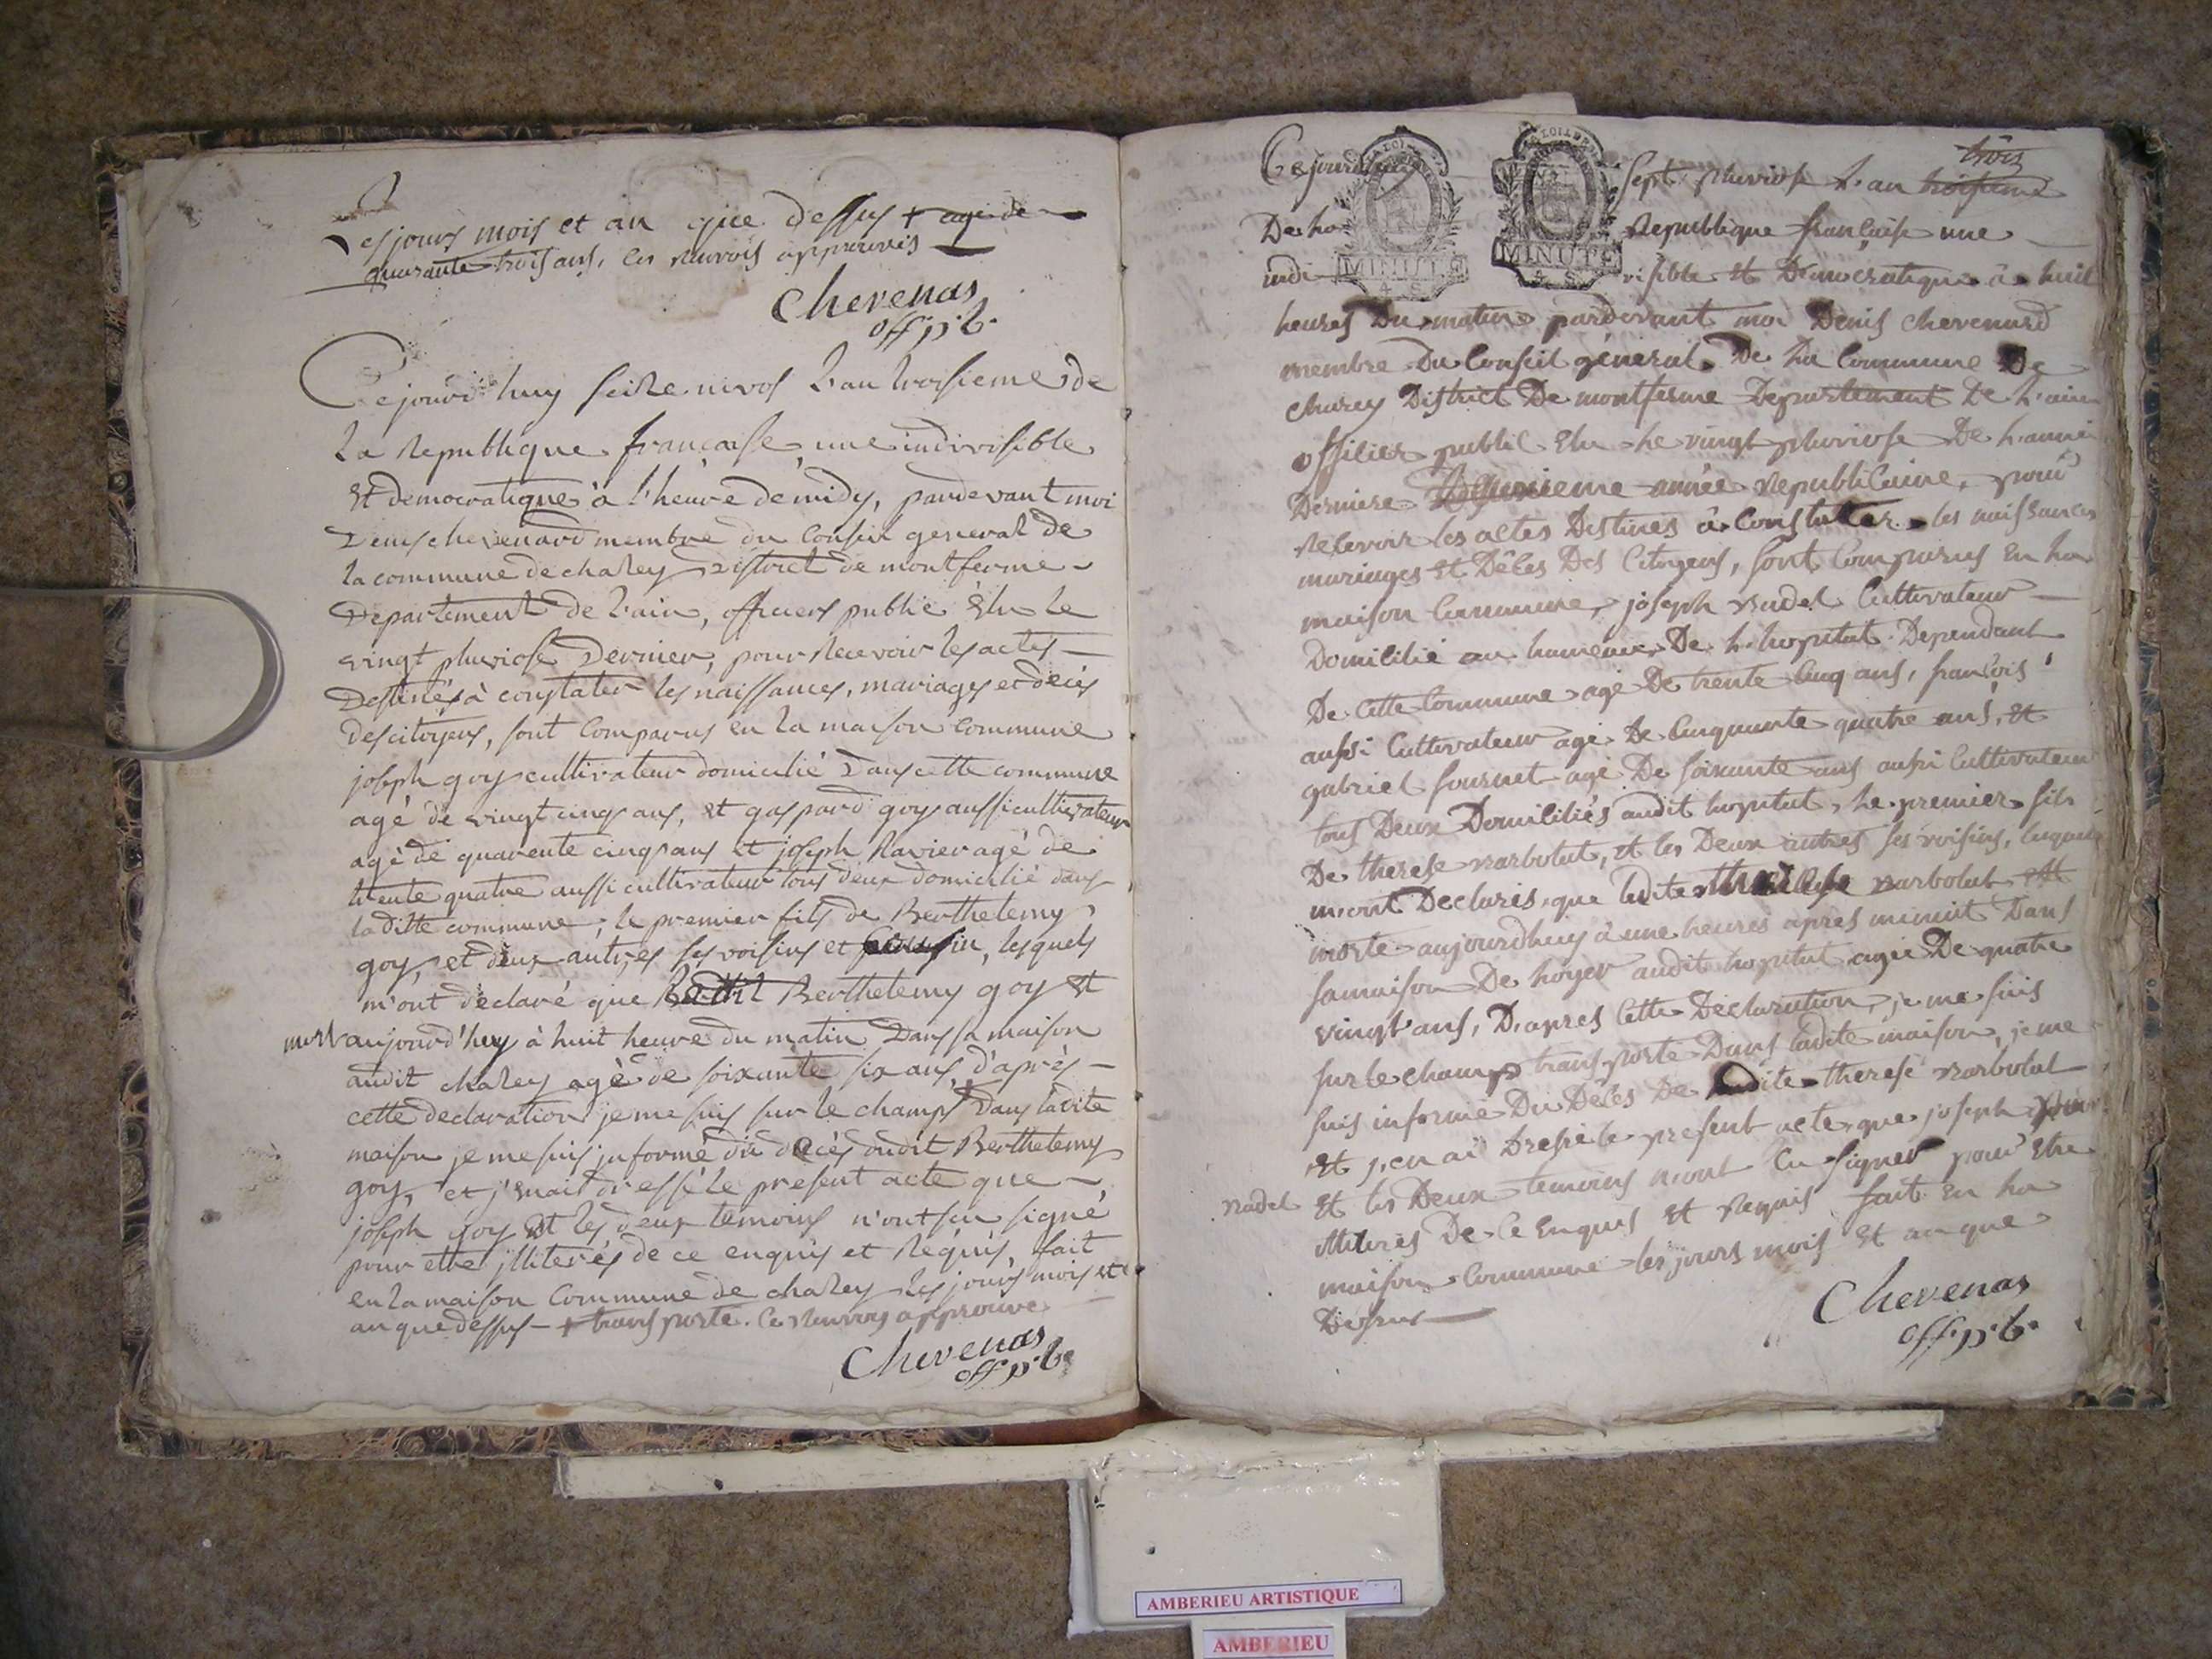 Les jours mois et an que dessus + agé de
quarante trois ans, les renvois approuvés
Chevenas
off. p. b.
Cejourd'huy seize nivos l'an troisieme de
la Republique française une indivisible
et democratique à l'heure de midy, pardevant moi
Denis chevenard membre du Conseil general de
la commune de chaley District de montferme
Departement de l'ain, officiers public élu le
vingt pluviose Dernier, pour Recevoir les actes
Destinés à constater les naissances, mariages et deces
des citoyens, sont comparus en la maison commune
joseph goy cultivateur domicilié Dans cette commune
agé de vingt cinq ans, et gaspard goy aussi cultivateur
agé de quarente cinq ans et joseph Ravier agé de
trente quatre aussi cultivateur tous deux domicilié dans
laditte commune, le premier fils de Berthelemy
goy, et deux autres ses voisins et Cousin, lesquels
m'ont déclaré que Berthelemy goy est
mort aujourd'huy à huit heure du matin Dans sa maison
audit chaley agé de soixante six ans, d'après
cette declaration je me suis sur le champs + Dans ladite
maison je me suis informé du décès dudit Berthelemy
goy, et j'enait dressé le present acte que
joseph goy et les deux temoins n'ont su signé
pour etre illiterés de ce enquis et Réquis, fait
en la maison Commune de chaley les jours mois et
an que dessus - + transporté. Ce renvois approuvé
Chevenas
off. p. b.
trois
Cejourd'huy sept pluviose l'an troisieme
De la Republique française une
LA LOI
MINUTE
4. S.
LA LOI
MINUTE
4. S.
indivisible et Democratique à huit
heures Du matin pardevant moi Denis chevenard
membre Du Conseil général De La Commune De
chaley District De montferme Departement De l'ain
officier public élu le vingt pluviose De l'année
Derniere Deuxieme année republicaine, pour
recevoir les actes Destinés à Constater les naissances
mariages et Décès Des Citoyens, sont Comparus en La
maison Commune, joseph nadel Cultivateur
Domicilié au hameau De l'hopital Dependant
De Cette Commune agé De trente Cinq ans, françois
aussi Cultivateur agé De Cinquante quatre ans, et
gabriel fournet agé De soixante ans aussi Cultivateur
tous Deux Domiciliés audit hopital, le premier fils
De therese narbolat, et les Deux autres ses voisins, lesquels
m'ont Declarés que ladite therese narbolat est
morte aujourdhuy à une heures après minuit Dans
sa maison De foyer audit hopital agée De quatre
vingt ans, D'apres Cette Declaration, je me suis
sur le champ transporté Dans ladite maison, je me
suis informé Du Décès De ladite therese narbolat
et j'en ai Dressé le present acte, que joseph
nadel et les Deux temoins n'ont su signer pour etre
illiteres De Ce Enquis et Requis fait En La
maison Commune les jours mois et an que
Dessus
Chevenas
off. p. b.
AMBERIEU ARTISTIQUE
AMBERIEU